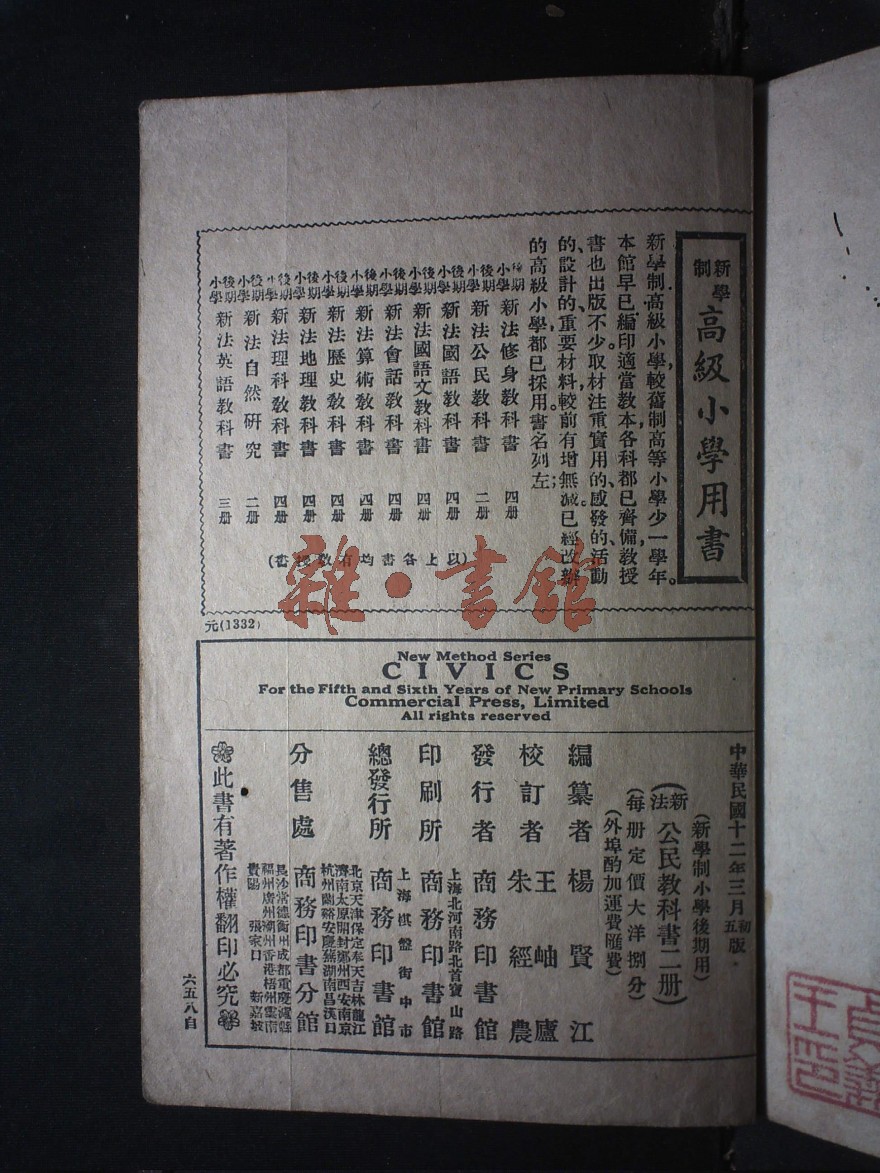 新學制
高級小學用書
新學制高級小學,較舊制高等小學少一學年。
本館早已編印適當教本,各科都已齊備,教授
書也出版不少。取材注重實用的、感發的、活動
的、設計的,重要材料,較前有增無減。已經改辦
的高級小學,都已採用。書名列左;
後期小學 新法修身教科書 四册
後期小學 新法公民教科書 二册
後期小學 新法國語教科書 四册
後期小學 新法國語文教科書 四册
後期小學 新法會話教科書 四册
後期小學 新法算術教科書 四册
後期小學 新法歷史教科書 四册
後期小學 新法地理教科書 四册
後期小學 新法理科教科書 四册
後期小學 新法自然研究 二册
後期小學 新法英語教科書 三册
(以上各書均有教授書)
元(1332)
雜·書館
New Method Series
CIVICS
For the Fifth and Sixth Years of New Primary Schools
Commercial Press, Limited
All rights reserved
中華民國十二年三月初五版
(新學制小學後期用)
(新法公民教科書二册)
(每册定價大洋捌分)
(外埠酌加運費匯費)
編纂者 楊賢江
校訂者 王岫廬 朱經農
發行者 商務印書館
上海北河南路北首寶山路
印刷所 商務印書館
上海棋盤街中市
總發行所 商務印書館
北京天津保定奉天吉林龍江
濟南太原開封鄭州西安南京
杭州蘭谿安慶蕪湖南昌漢口
分售處 商務印書分館
長沙常德衡州成都重慶瀘縣
福州廣州潮州香港梧州雲南
貴陽 張家口 新嘉坡
此書有著作權翻印必究
六五八自